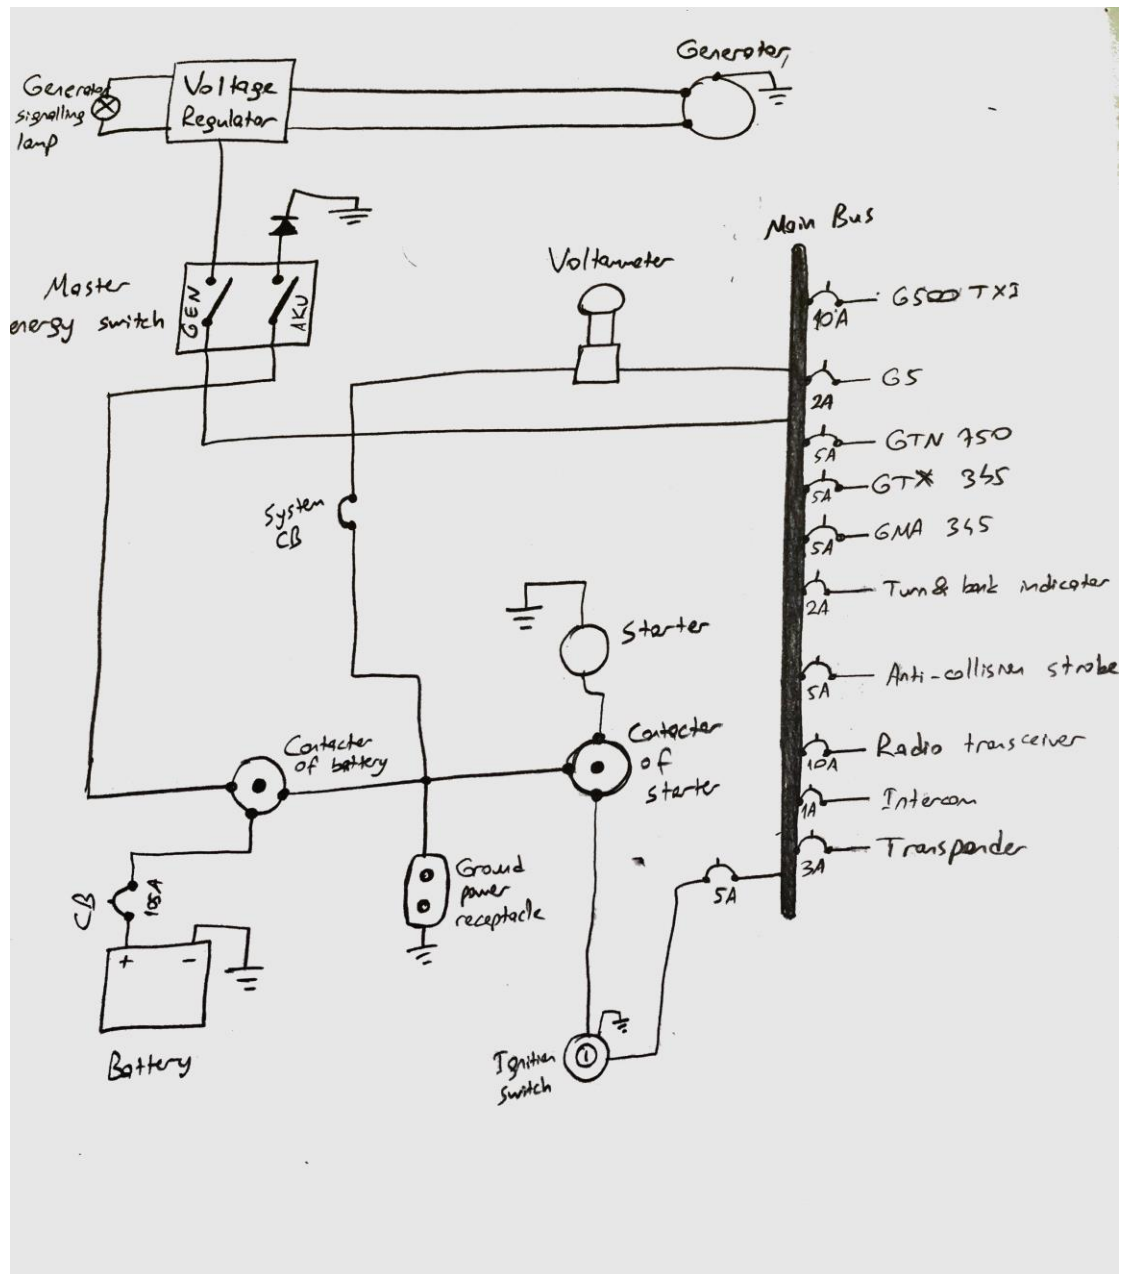 Generator
Generator
signalling
lamp
Voltage
Regulator
Master
energy switch
GEN
AKU
Voltammeter
Main Bus
10A
G500 TXI
2A
G5
5A
GTN 750
5A
GTX 345
5A
GMA 345
2A
Turn & bank indicator
5A
Anti-collision strobe
10A
Radio transceiver
1A
Intercom
3A
Transponder
5A
System
CB
Starter
Contacter
of
starter
Contacter
of battery
Ground
power
receptacle
CB
+
-
Battery
Ignition
switch